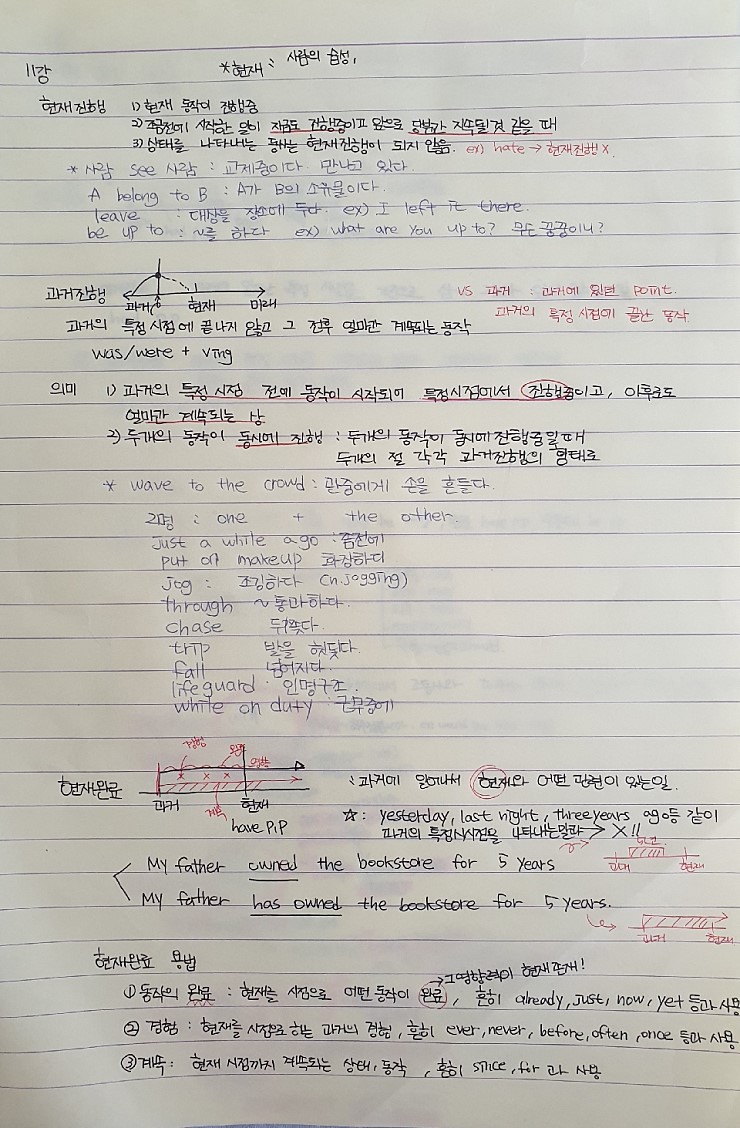 11강
*현재 : 사람의 습성,
현재진행 1) 현재 동작이 진행중
2) 조금전에 시작한 일이 지금도 진행중이고 앞으로 당분간 지속될 것 같을 때
3) 상태를 나타내는 동사는 현재진행이 되지 않음. ex) hate → 현재진행 X.
* 사람 see 사람 : 교제중이다. 만나고 있다.
A belong to B : A가 B의 소유물이다.
leave : 대상을 장소에 두다. ex) I left it there.
be up to : ~를 하다 ex) what are you up to? 무슨 꿍꿍이니?
과거진행 과거 현재 미래
vs 과거 : 과거에 있던 point.
과거의 특정시점에 끝난 동작
과거의 특정시점에 끝나지 않고 그 전후 얼마간 계속되는 동작
was/were + Ving
의미 1) 과거의 특정시점 전에 동작이 시작되어 특정시점에서 진행중이고, 이후로도
얼마간 계속되는 상
2) 두개의 동작이 동시에 진행 : 두개의 동작이 동시에 진행중일 때
두개의 절 각각 과거진행의 형태로
* wave to the crowd : 관중에게 손을 흔들다.
2명 : one + the other.
just a while ago : 좀전에
put on makeup 화장하다
jog : 조깅하다 (n.jogging)
through ~통과하다.
chase 뒤쫓다.
trip 발을 헛딛다.
fall 넘어지다.
lifeguard : 인명구조.
while on duty : 근무중에
현재완료 경험 완료 계속 과거 현재
have P.P
: 과거에 일어나서 현재와 어떤 관련이 있는일.
☆: yesterday, last night, three years ago등 같이
과거의 특정시점을 나타내는말과 → X!!
My father owned the bookstore for 5 years
과거 5년 현재
My father has owned the bookstore for 5 years.
과거 현재
현재완료 용법
→그영향력이 현재존재!
① 동작의 완료 : 현재를 시점으로 어떤 동작이 완료, 흔히 already, just, now, yet 등과 사용
② 경험 : 현재를 시점으로 하는 과거의 경험, 흔히 ever, never, before, often, once 등과 사용
③ 계속 : 현재 시점까지 계속되는 상태, 동작, 흔히 since, for 과 사용